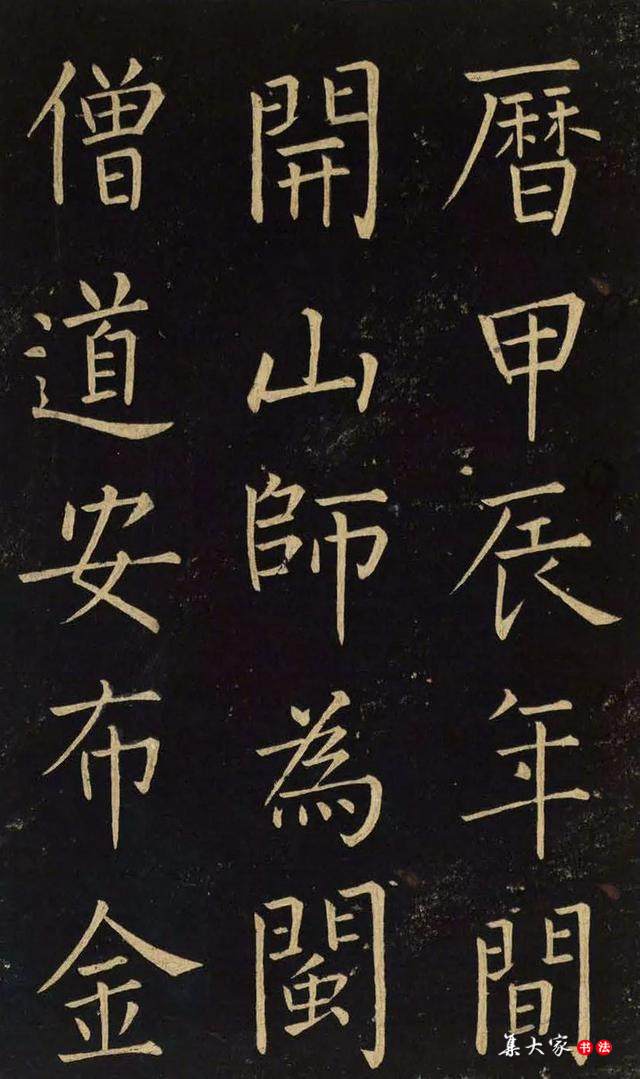 暦甲辰年間
開山師為閩
僧道安布金
集大家书法